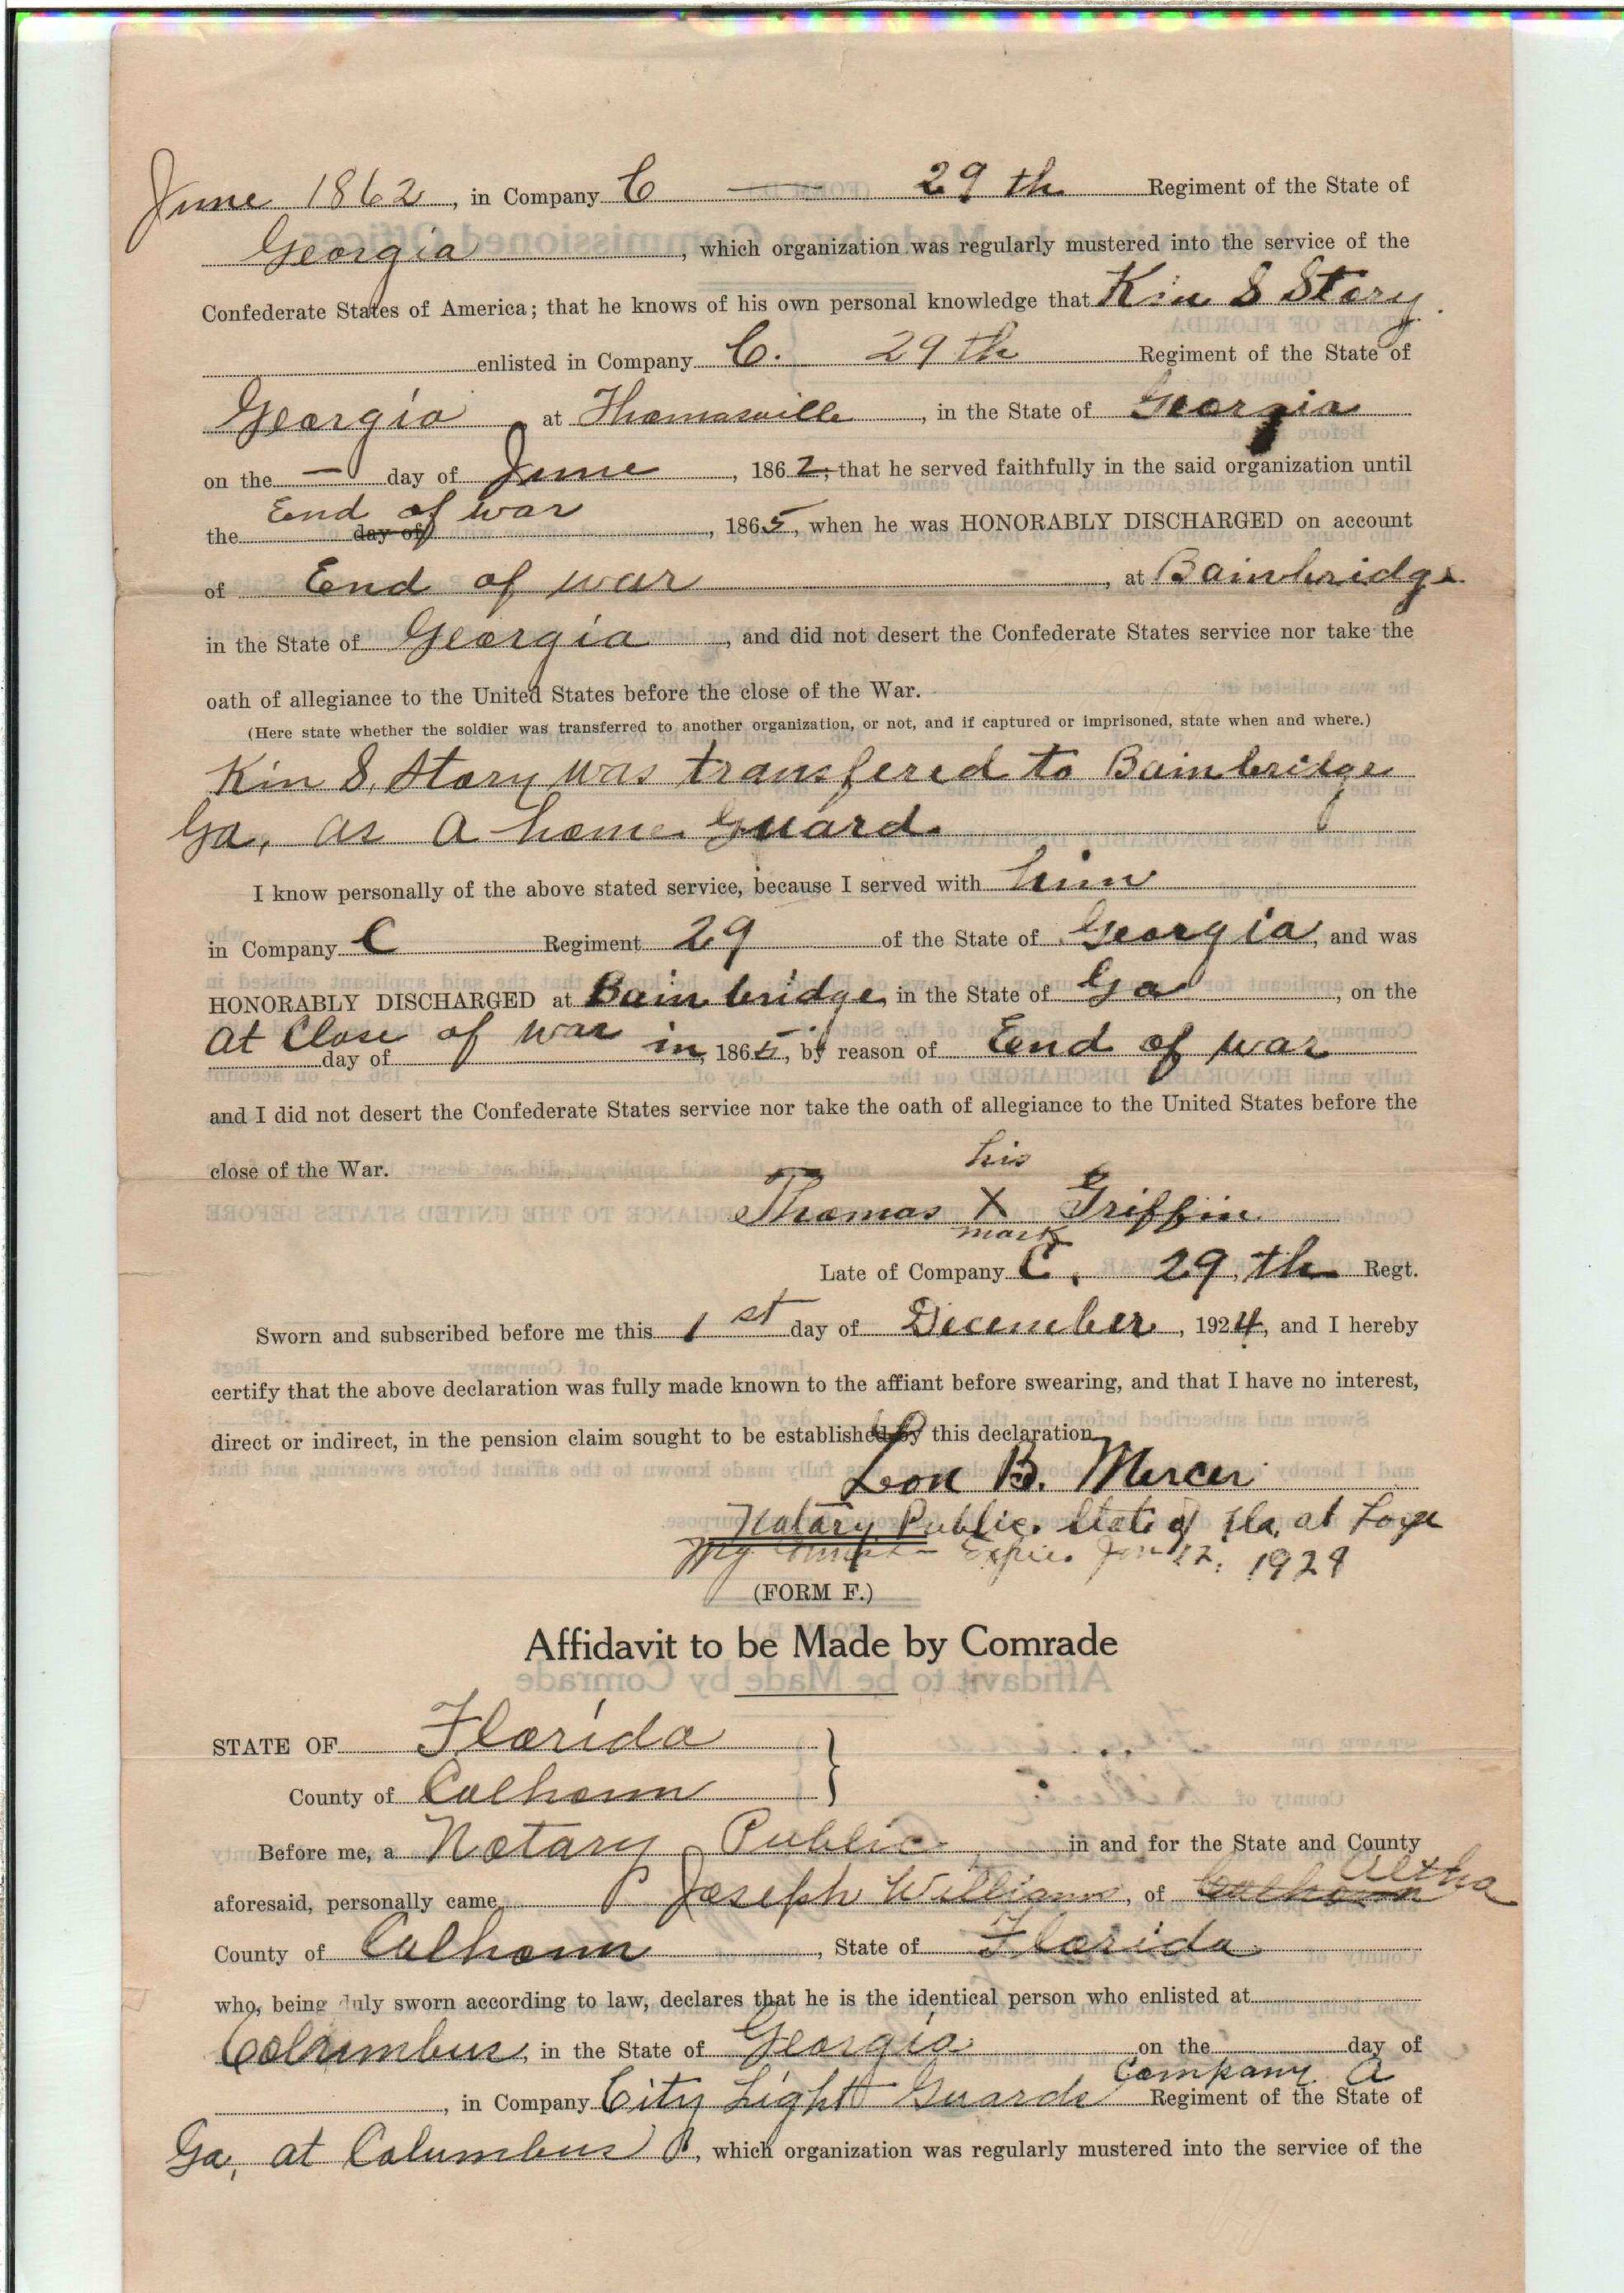 June 1862, in Company C — 29 th Regiment of the State of
Georgia, which organization was regularly mustered into the service of the
Confederate States of America; that he knows of his own personal knowledge that Kin S Story
enlisted in Company C. 29 th Regiment of the State of
Georgia at Thomasville, in the State of Georgia
on the — day of June, 1862, that he served faithfully in the said organization until
the End of war day of, 1865, when he was HONORABLY DISCHARGED on account
of End of war, at Bainbridge
in the State of Georgia, and did not desert the Confederate States service nor take the
oath of allegiance to the United States before the close of the War.
(Here state whether the soldier was transferred to another organization, or not, and if captured or imprisoned, state when and where.)
Kin S. Story was transfered to Bainbridge
Ga, as a home guard.
I know personally of the above stated service, because I served with him
in Company C Regiment 29 of the State of Georgia, and was
HONORABLY DISCHARGED at Bainbridge, in the State of Ga, on the
at Close of war day of in, 1865, by reason of End of war
and I did not desert the Confederate States service nor take the oath of allegiance to the United States before the
close of the War.
his
Thomas X Griffin
mark
Late of Company C. 29, th Regt.
Sworn and subscribed before me this 1st day of December, 1924, and I hereby
certify that the above declaration was fully made known to the affiant before swearing, and that I have no interest,
direct or indirect, in the pension claim sought to be established by this declaration.
Leon B. Mercer
Notary Public. State of Fla, at Large
My Expires Jan 12, 1928
(FORM F.)
Affidavit to be Made by Comrade
STATE OF Florida
County of Calhoun
Before me, a Notary Public in and for the State and County
aforesaid, personally came, Joseph Williams, of Calhoun Altha
County of Calhoun, State of Florida
who, being duly sworn according to law, declares that he is the identical person who enlisted at
Columbus, in the State of Georgia on the day of
, in Company City Light Guards Company A Regiment of the State of
Ga, at Columbus, which organization was regularly mustered into the service of the